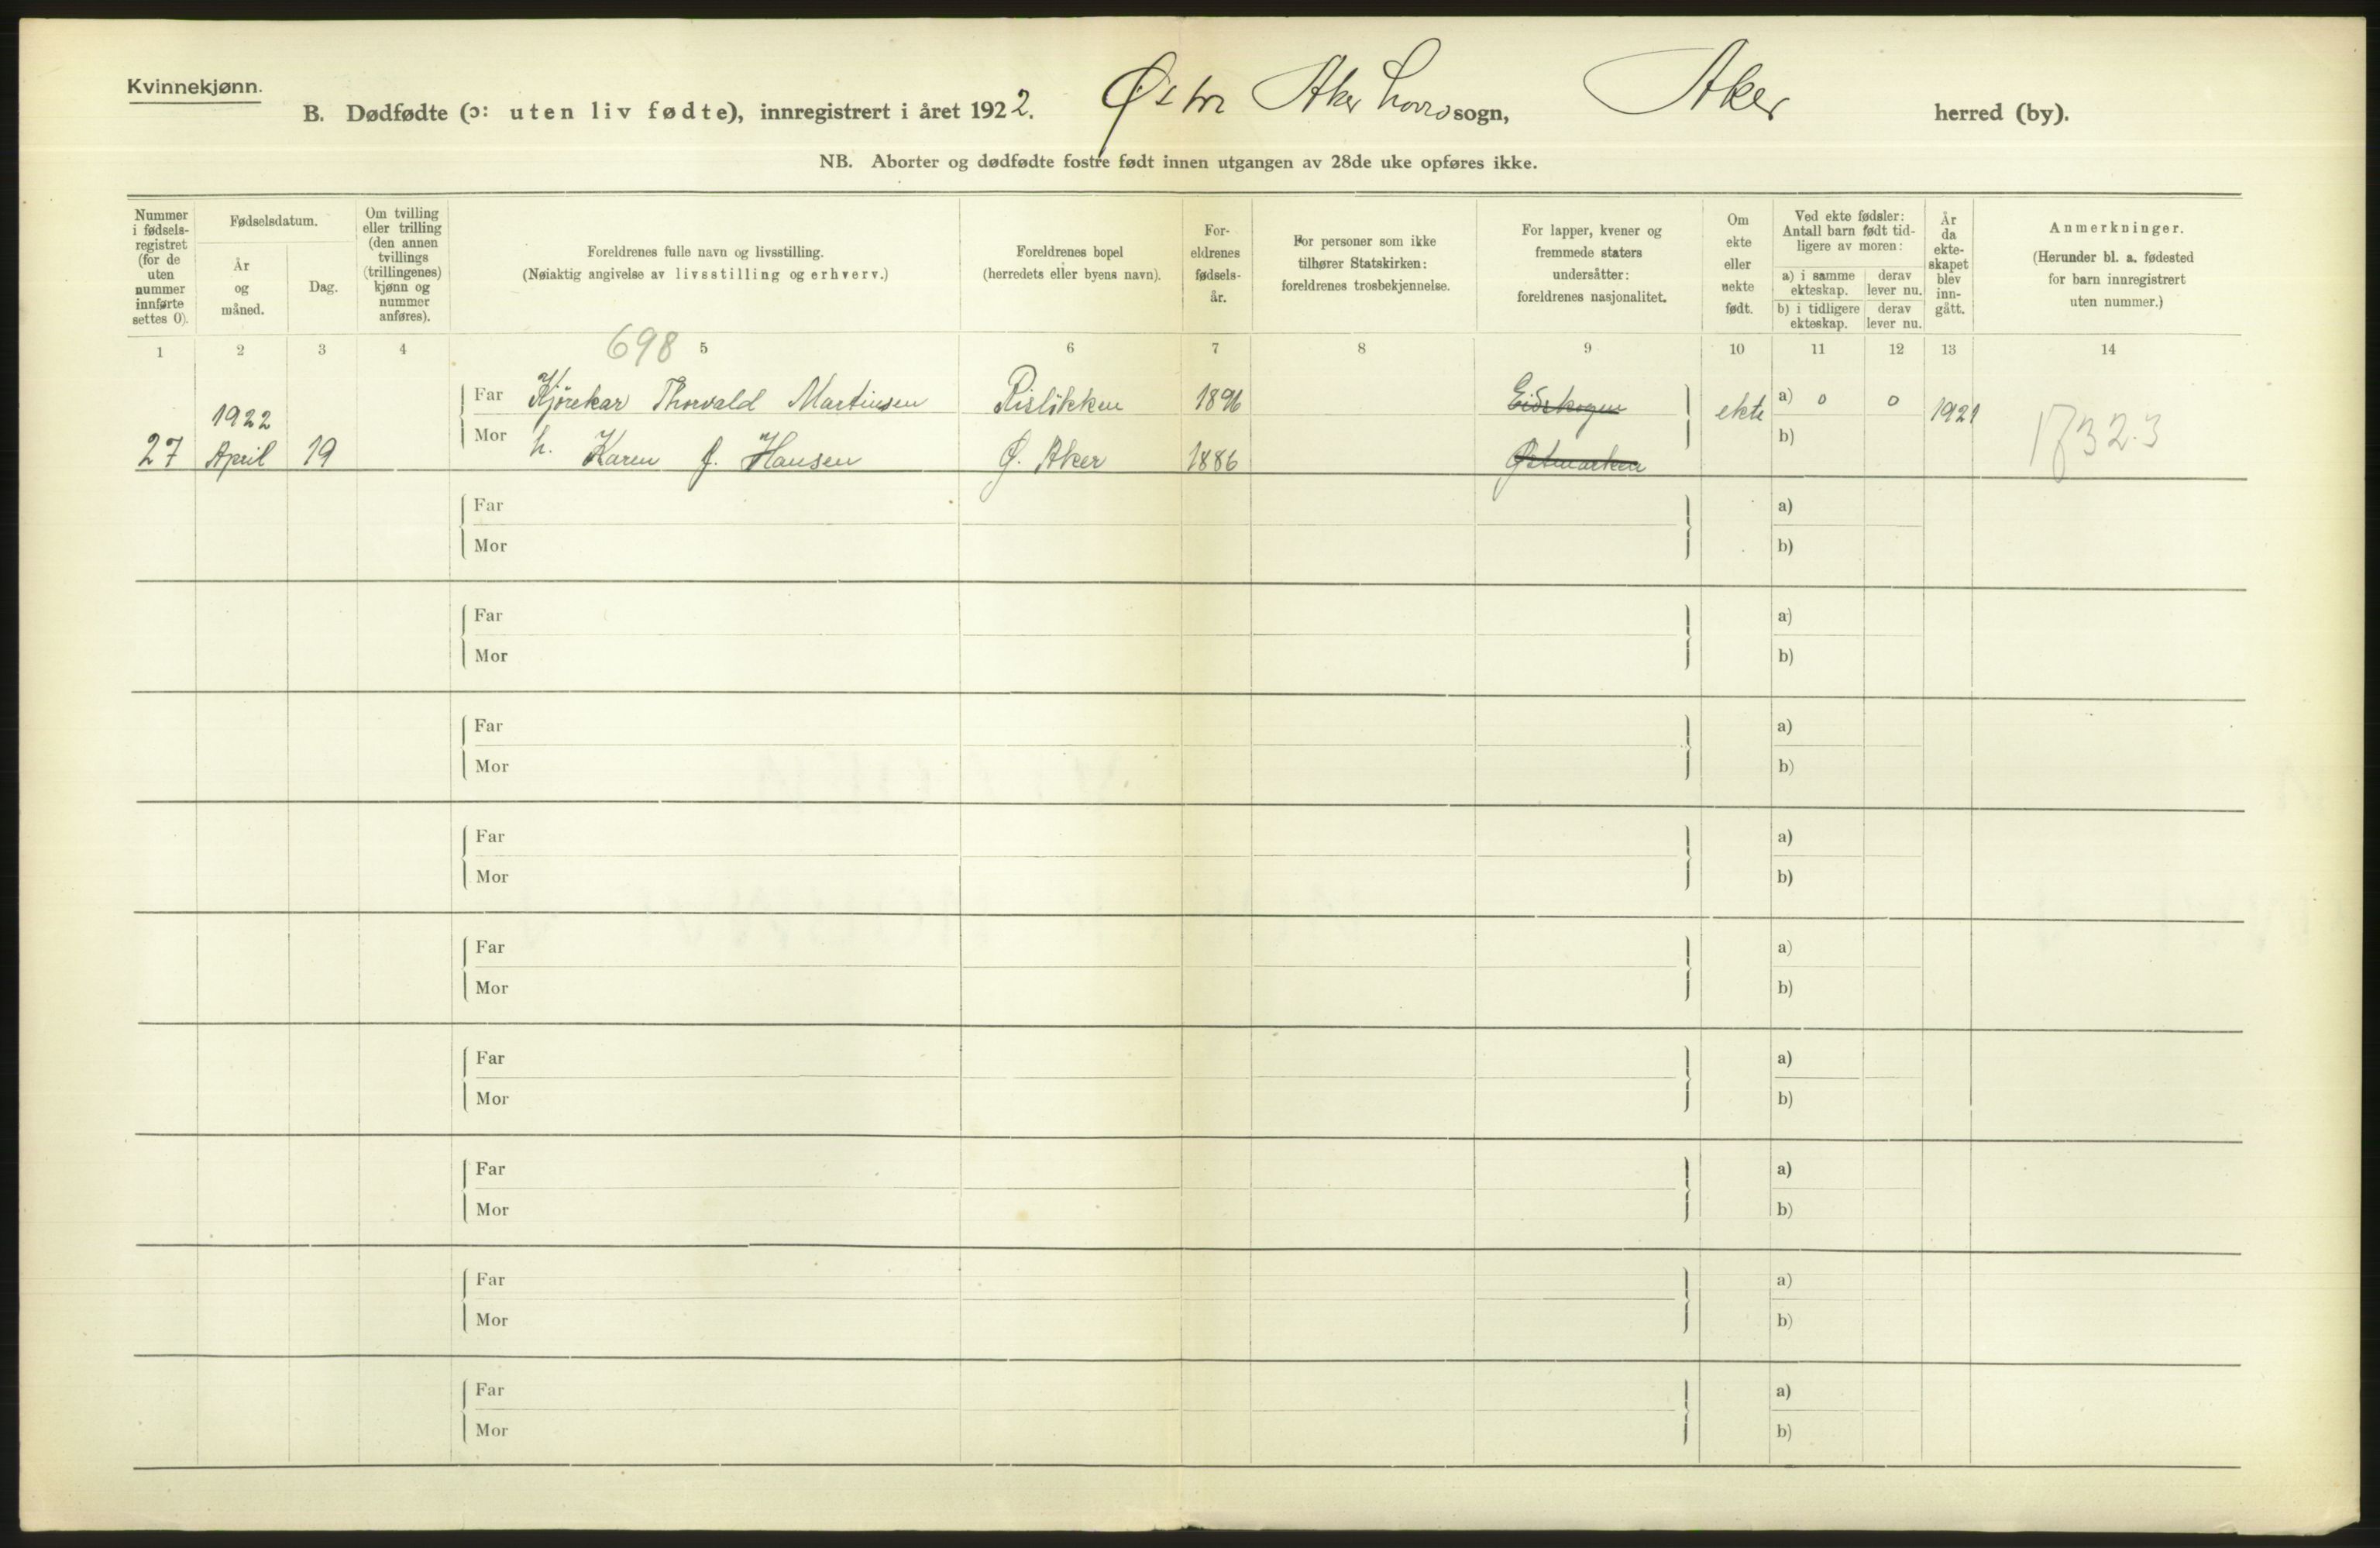 Kvinnekjønn.
B. Dødfødte (ɔ: uten liv fødte), innregistrert i året 1922. Østre Aker sogn, Aker herred (by).
NB. Aborter og dødfødte fostre født innen utgangen av 28de uke opføres ikke.
Nummer i fødsels- registret (for de uten nummer innførte settes 0).
Fødselsdatum.
År og måned.
Dag.
Om tvilling eller trilling (den annen tvillings (trillingenes) kjønn og nummer anføres).
Foreldrenes fulle navn og livsstilling.
(Nøiaktig angivelse av livsstilling og erhverv.)
Foreldrenes bopel
(herredets eller byens navn).
For- eldrenes fødsels- år.
For personer som ikke
tilhører Statskirken:
foreldrenes trosbekjennelse.
For lapper, kvener og
fremmede staters
undersåtter:
foreldrenes nasjonalitet.
Om ekte eller uekte født.
Ved ekte fødsler:
Antall barn født tid-
ligere av moren:
a) i samme ekteskap.
derav lever nu.
b) i tidligere ekteskap.
derav lever nu.
År da ekte- skapet blev inn- gått.
Anmerkninger.
(Herunder bl. a. fødested
for barn innregistrert
uten nummer.)
1 2 3 4 698 5 6 7 8 9 10 11 12 13 14
Far Kjørekar Thorvald Martinsen Risløkken 1896 Eidskogen ekte a) 0 0 1921 17323
27 1922 April 19 Mor h. Karen J. Hansen Ø. Aker 1886 Østmarken b)
Far a)
Mor b)
Far a)
Mor b)
Far a)
Mor b)
Far a)
Mor b)
Far a)
Mor b)
Far a)
Mor b)
Far a)
Mor b)
Far a)
Mor b)
Far a)
Mor b)